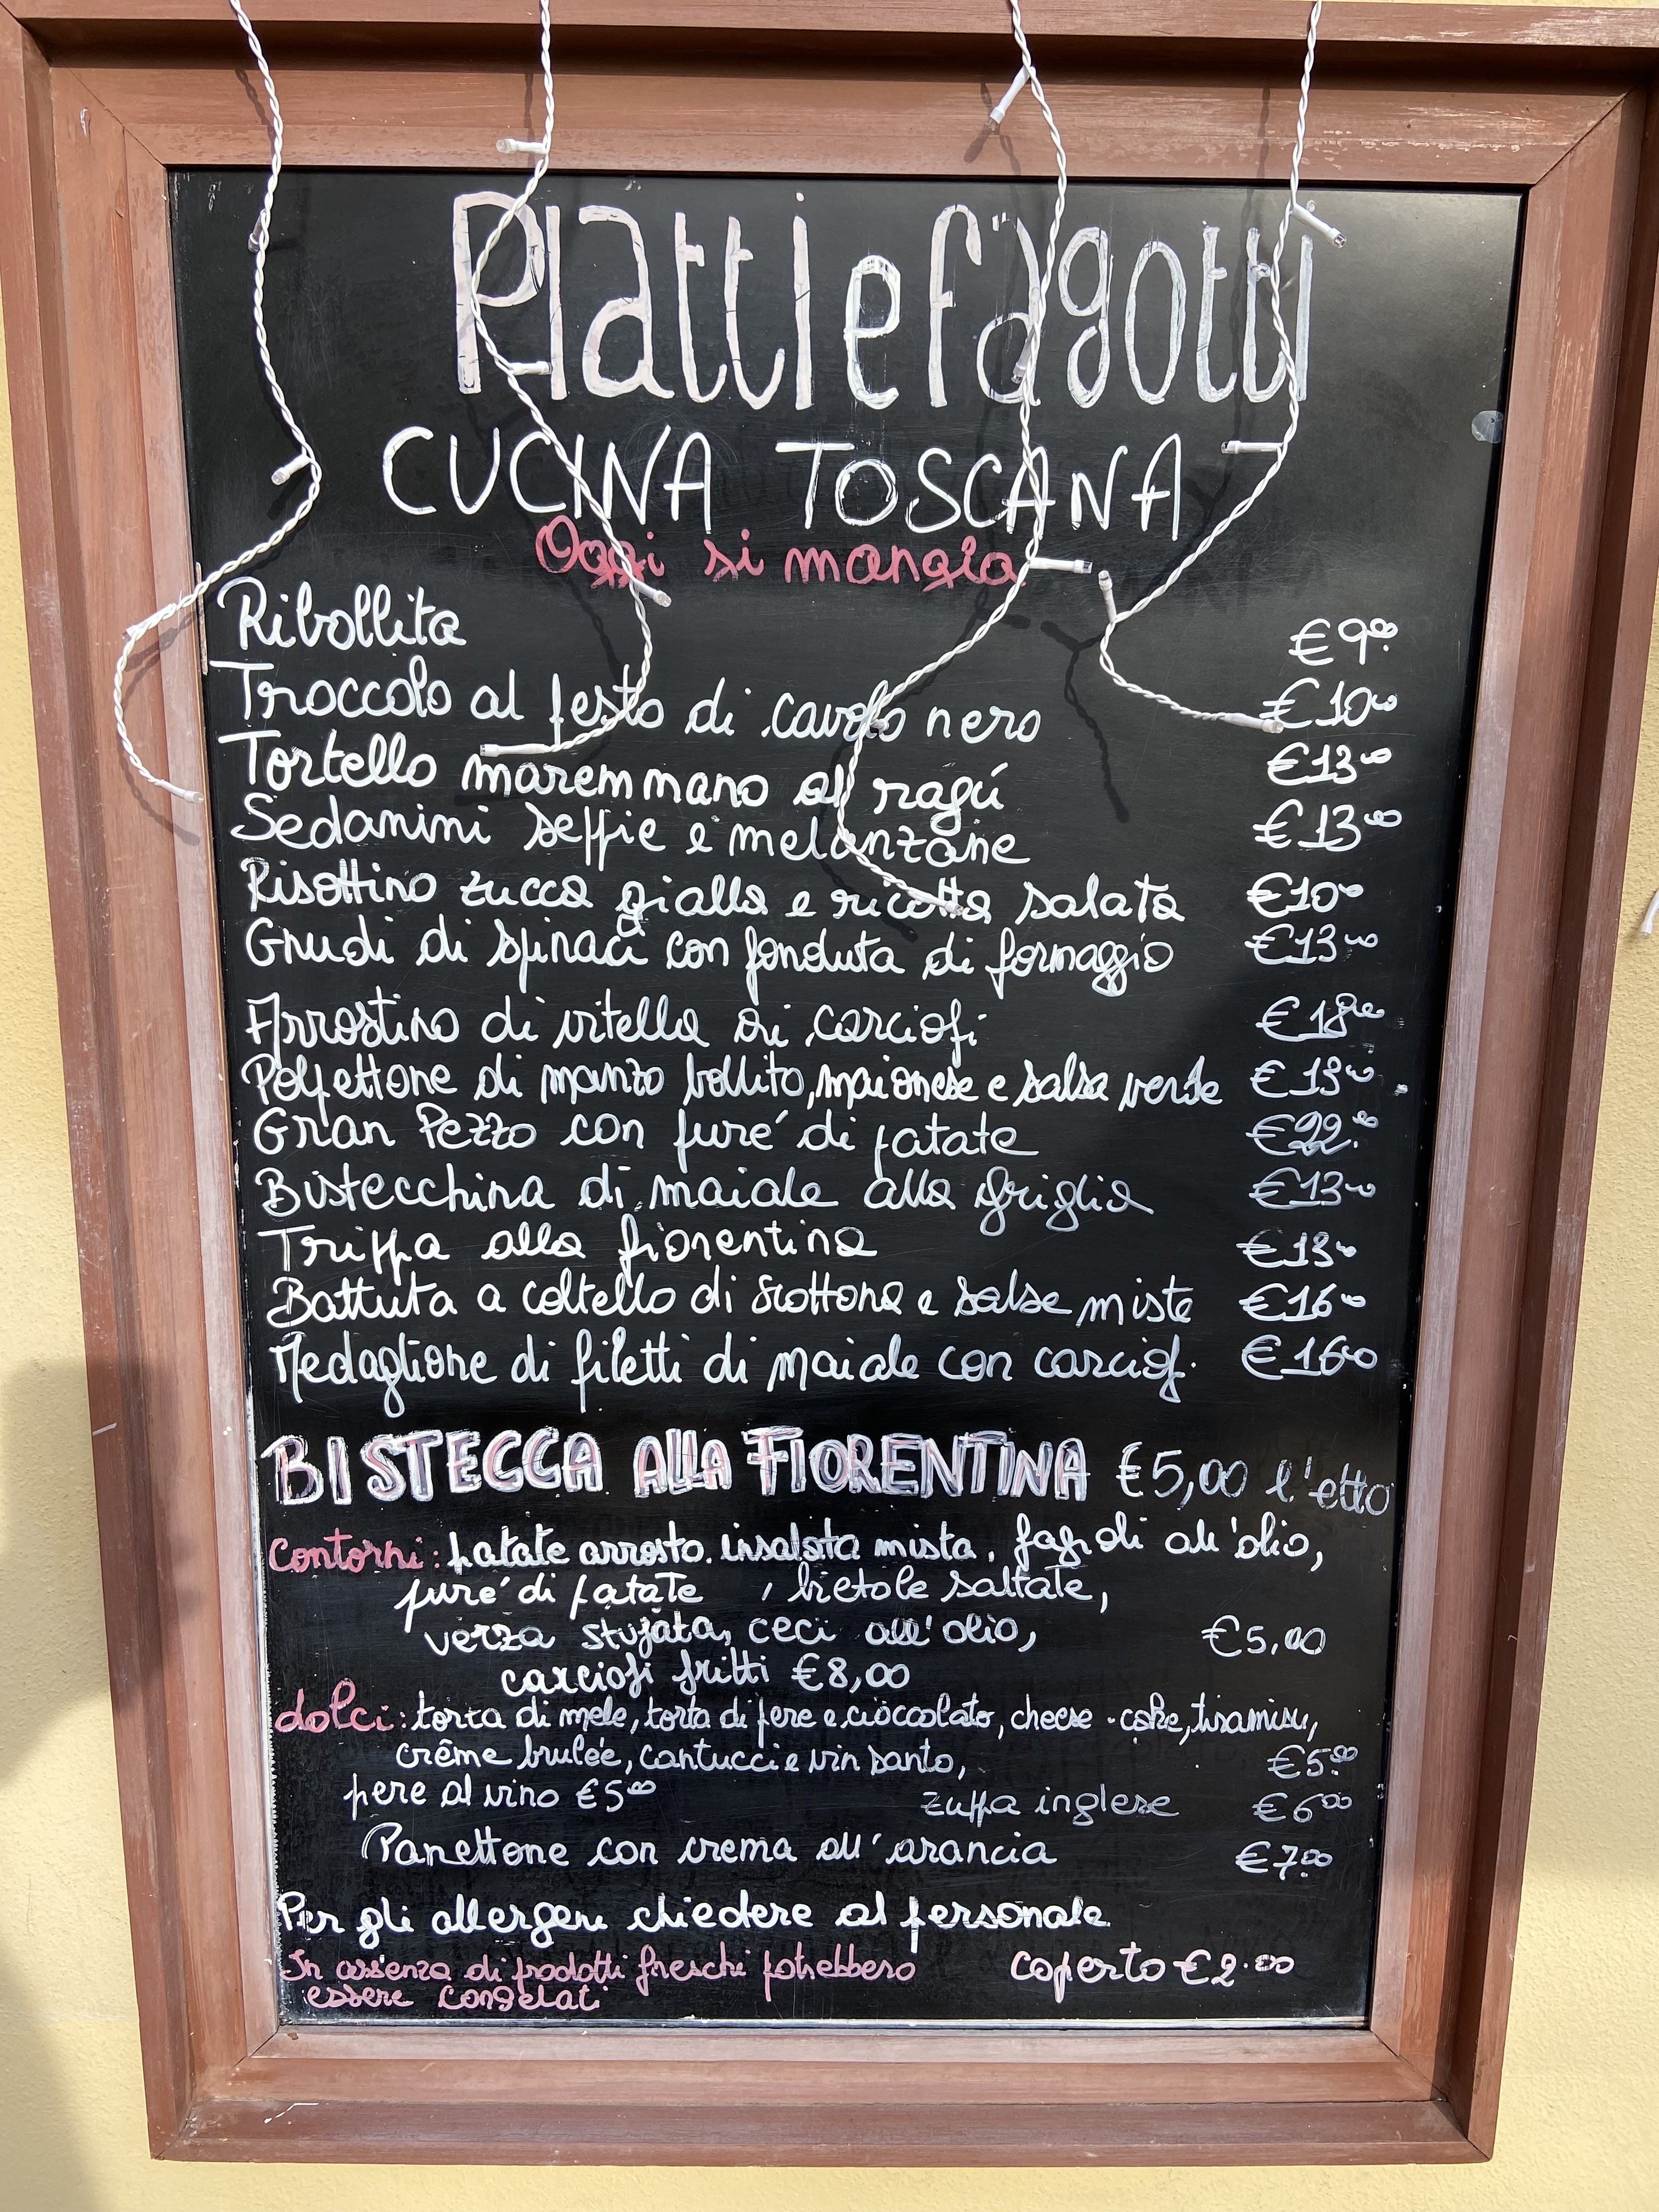 Piatti e fagotti
CUCINA TOSCANA
Oggi si mangia
Ribollita €9.00
Troccolo al pesto di cavolo nero €10.00
Tortello maremmano al ragú €13.00
Sedanini seppie e melanzane €13.00
Risottino zucca gialla e ricotta salata €10.00
Gnudi di spinaci con fonduta di formaggio €13.00
Arrostino di vitella ai carciofi €18.00
Polpettone di manzo bollito, maionese e salsa verde €13.00
Gran Pezzo con puré di patate €22.00
Bistecchina di maiale alla griglia €13.00
Trippa alla fiorentina €13.00
Battuta a coltello di scottona e salse miste €16.00
Medaglione di filetti di maiale con carciof. €16.00
BISTECCA ALLA FIORENTINA €5,00 l'etto
Contorni: patate arrosto, insalata mista, fagioli all'olio,
puré di patate, bietole saltate,
verza stufata, ceci all'olio, €5,00
carciofi fritti €8,00
dolci: torta di mele, torta di pere e cioccolato, cheese-cake, tiramisu,
crême brulée, cantucci e vin santo, €5.00
pere al vino €5.00 zuppa inglese €6.00
Panettone con crema all'arancia €7.00
Per gli allergeni chiedere al personale.
In assenza di prodotti freschi potrebbero coperto €2.00
essere congelati